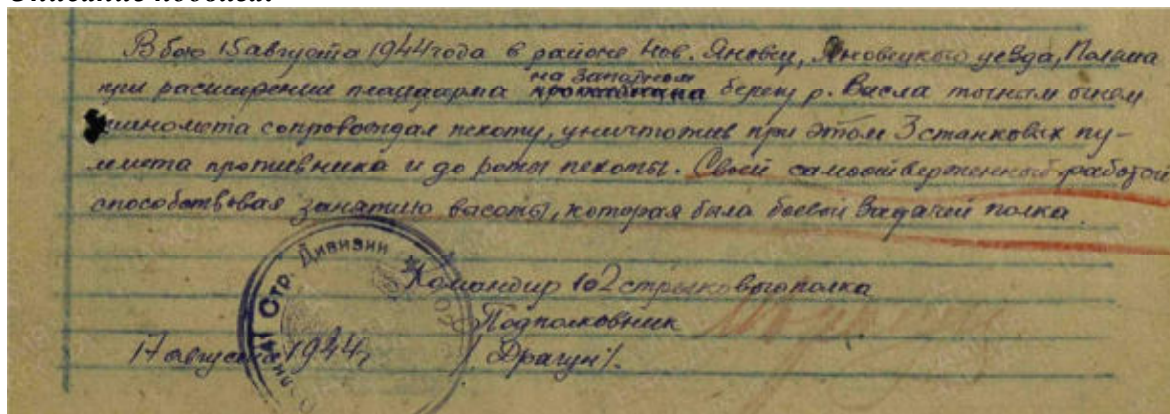 Описание подвига:
В бою 15 августа 1944 года в районе Нов. Яновец, Яновецкого уезда, Польша
на западном
при расширении плацдарма берегу р. Висла точным огнем
миномета сопровождал пехоту, уничтожив при этом 3 станковых пу-
лемета противника и до роты пехоты. Своей самоотверженной работой
способствовал занятию высоты, которая была боевой задачей полка.
Стр. Дивизии
Командир 102 стрелкового полка
Подполковник
17 августа 1944г /Драгун/.